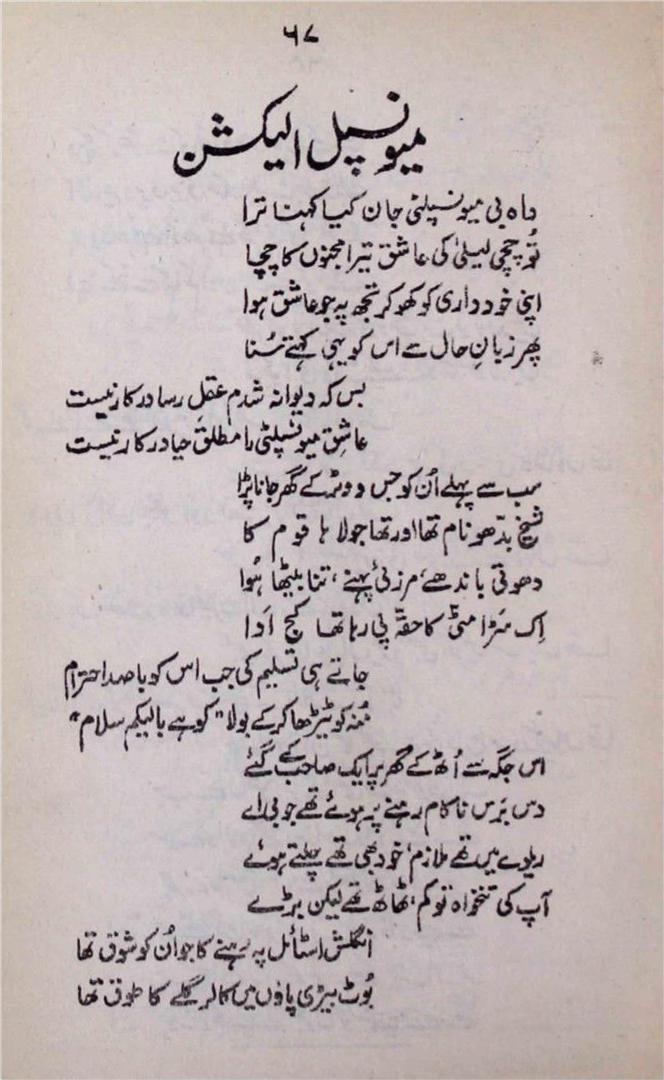 ۶۷
میونسپل الیکشن
واہ بی میونسپلٹی جان کیا کہنا ترا
تُو چچی لیلیٰ کی عاشق تیرا مجنوں کا چچا
اپنی خودداری کو کھو کر تجھ پہ جو عاشق ہوا
پھر زبانِ حال سے اس کو یہی کہتے سُنا
بس کہ دیوانہ شدم عقلِ رسا درکار نیست
عاشقِ میونسپلٹی را مطلق حیا درکار نیست
سب سے پہلے اُن کو جس ووٹر کے گھر جانا پڑا
شیخ بدّھو نام تھا اور تھا جولاہا قوم کا
دھوتی باندھے، مرزئی پہنے، تنا بیٹھا ہُوا
اِک سَڑا مٹی کا حقہ پی رہا تھا کج ادا
جاتے ہی تسلیم کی جب اس کو باصد احترام
مُنہ کو ٹیڑھا کر کے بولا "کو ہے بالیکم سلام"
اس جگہ سے اُٹھ کے گھر پر ایک صاحب کے گئے
دس برس ناکام رہنے پر ہوئے تھے جو بی اے
ریلوے میں تھے ملازم، خود بھی تھے پہلتے ہوئے
آپ کی تنخواہ تو کم، ٹھاٹھ تھے لیکن بڑے
انگلش اسٹائل پہ رہنے کا جو اُن کو شوق تھا
بُوٹ بیڑی پاؤں میں کالر گلے کا طوق تھا